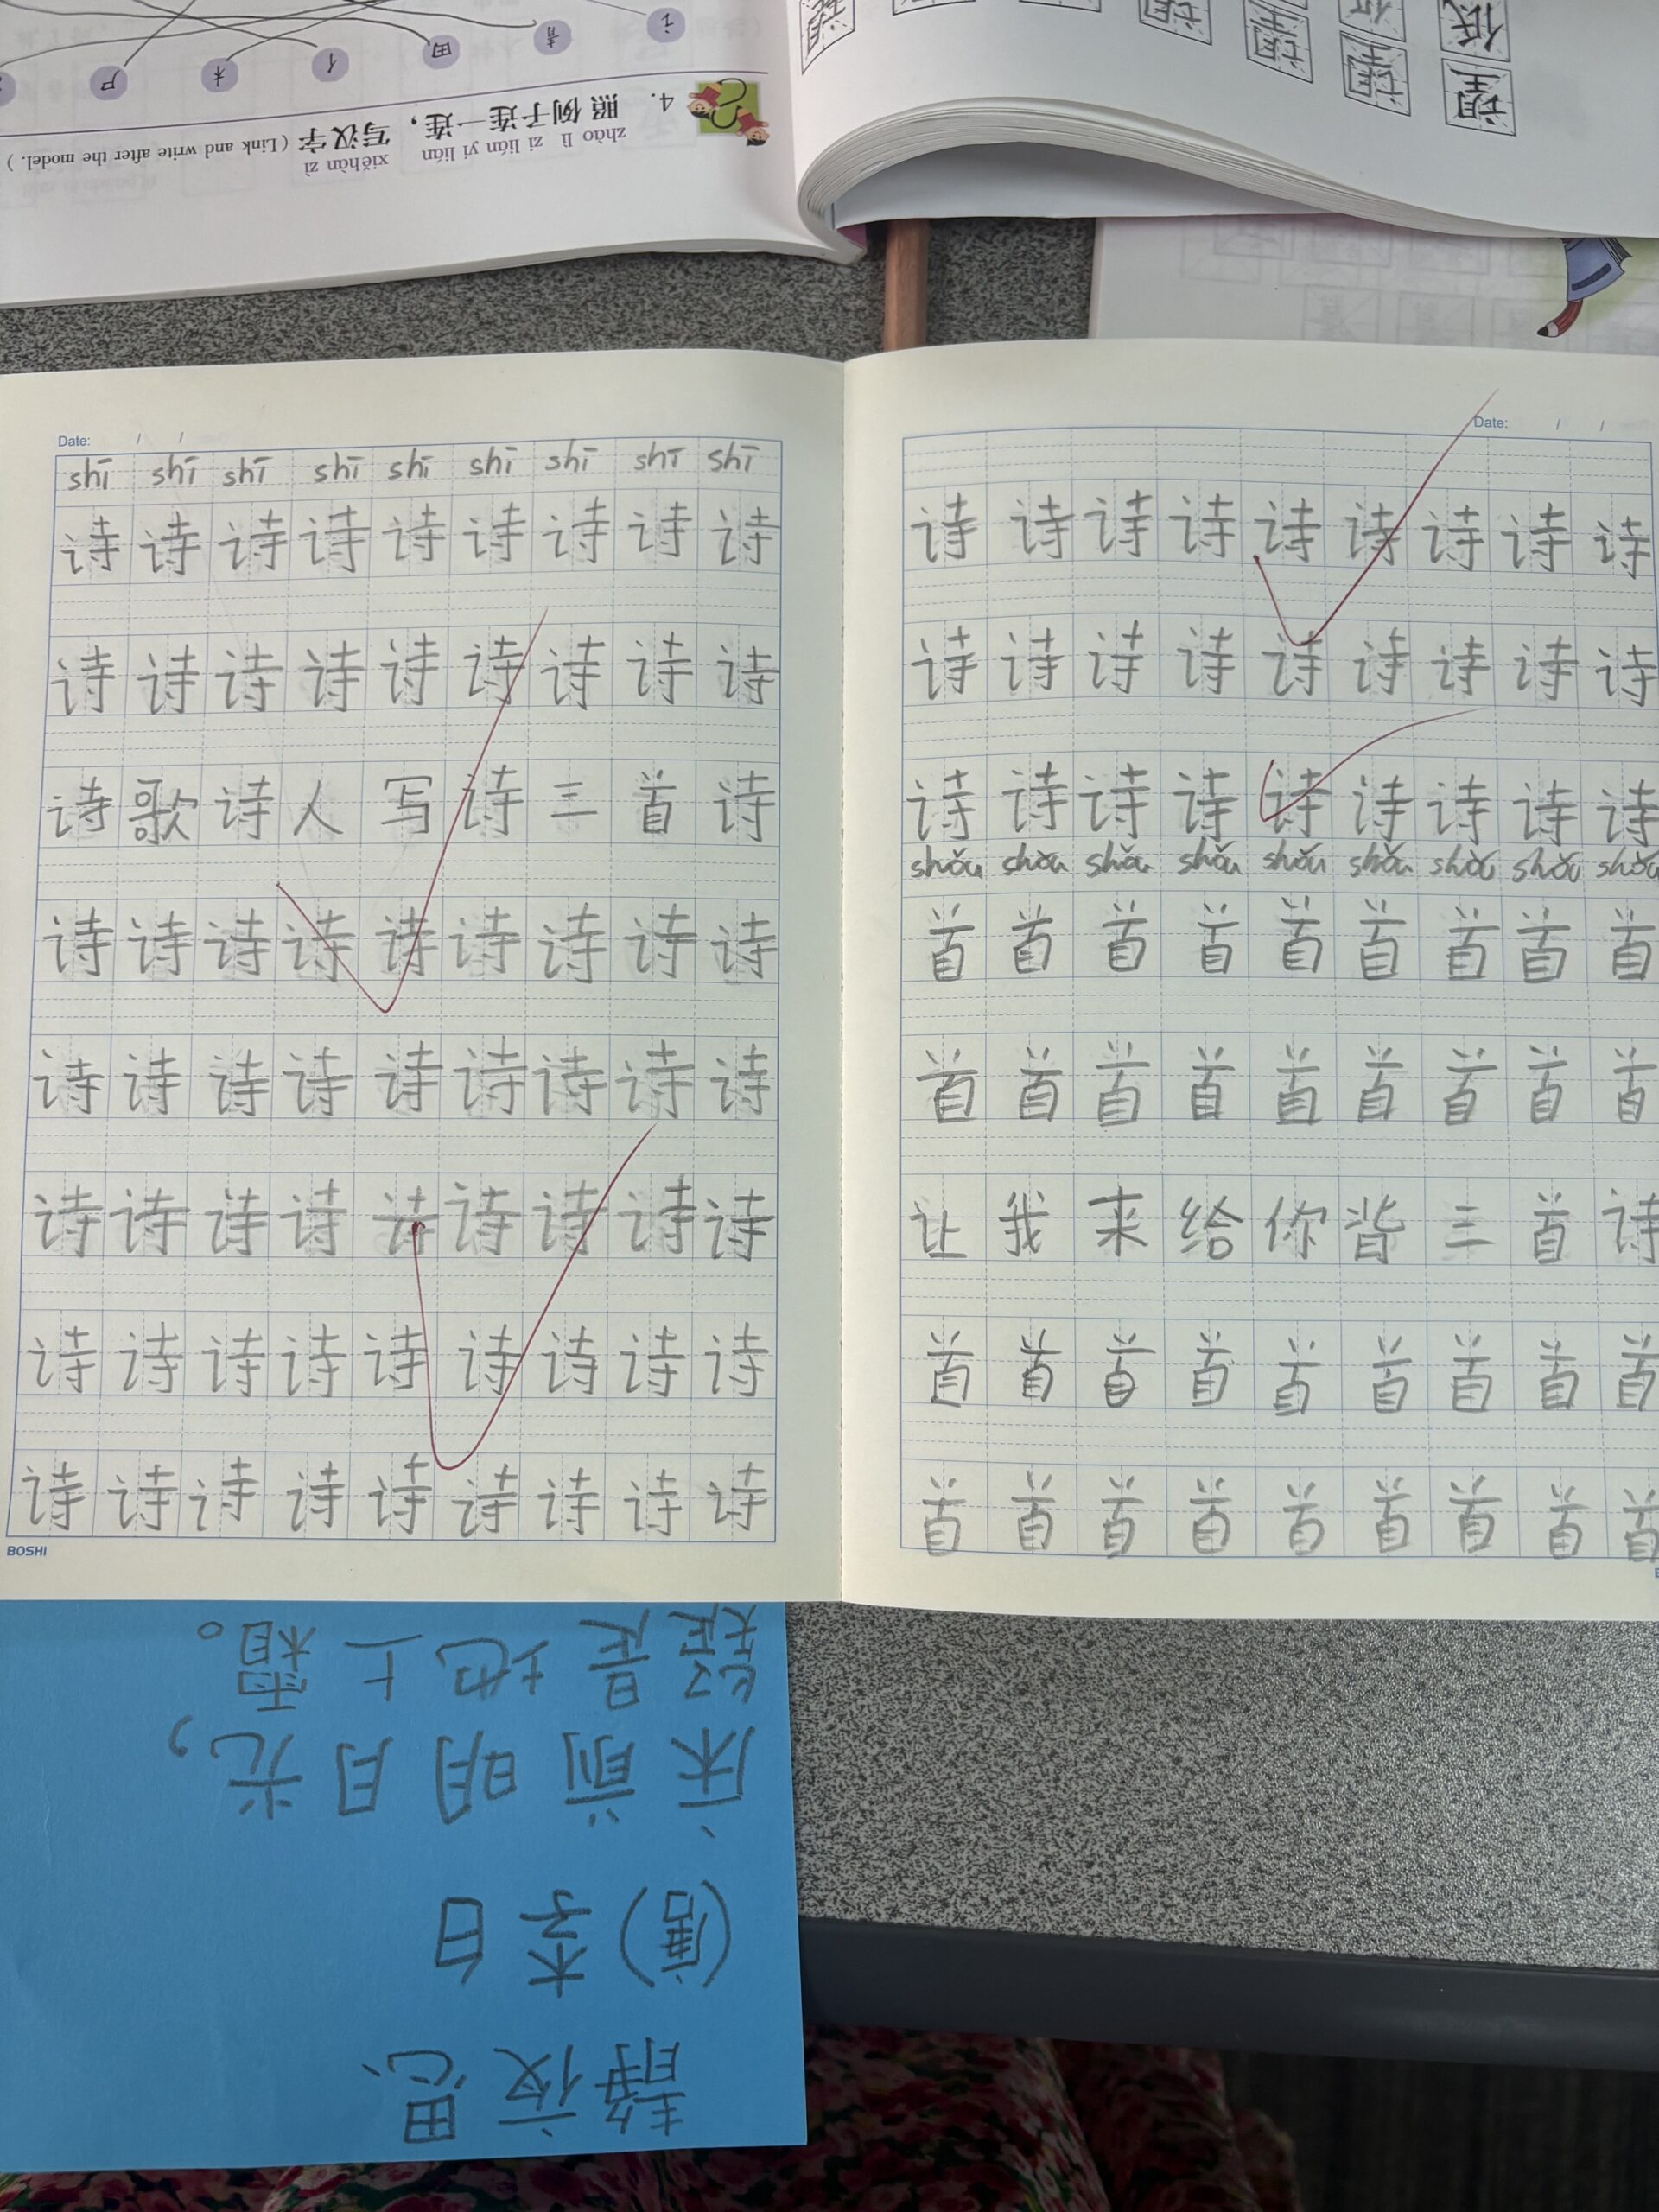 4. 照例子连一连，写汉字（Link and write after the model.）
zhào lì zi lián yi lián xiěhàn zì
讠 青 田 亻 木 尸
望 低
Date: / /
shī shī shī shī shī shī shī shī shī
诗 诗 诗 诗 诗 诗 诗 诗 诗
诗 诗 诗 诗 诗 诗 诗 诗 诗
诗 歌 诗 人 写 诗 三 首 诗
诗 诗 诗 诗 诗 诗 诗 诗 诗
诗 诗 诗 诗 诗 诗 诗 诗 诗
诗 诗 诗 诗 诗 诗 诗 诗
诗 诗 诗 诗 诗 诗 诗 诗 诗
诗 诗 诗 诗 诗 诗 诗 诗 诗
BOSHI
Date: / /
诗 诗 诗 诗 诗 诗 诗 诗 诗
诗 诗 诗 诗 诗 诗 诗 诗 诗
诗 诗 诗 诗 诗 诗 诗 诗 诗
shǒu shǒu shǒu shǒu shǒu shǒu shǒu shǒu shǒu
首 首 首 首 首 首 首 首 首
首 首 首 首 首 首 首 首 首
让 我 来 给 你 背 三 首 诗
首 首 首 首 首 首 首 首 首
首 首 首 首 首 首 首 首 首
静夜思
(唐) 李白
床前明月光，
疑是地上霜。